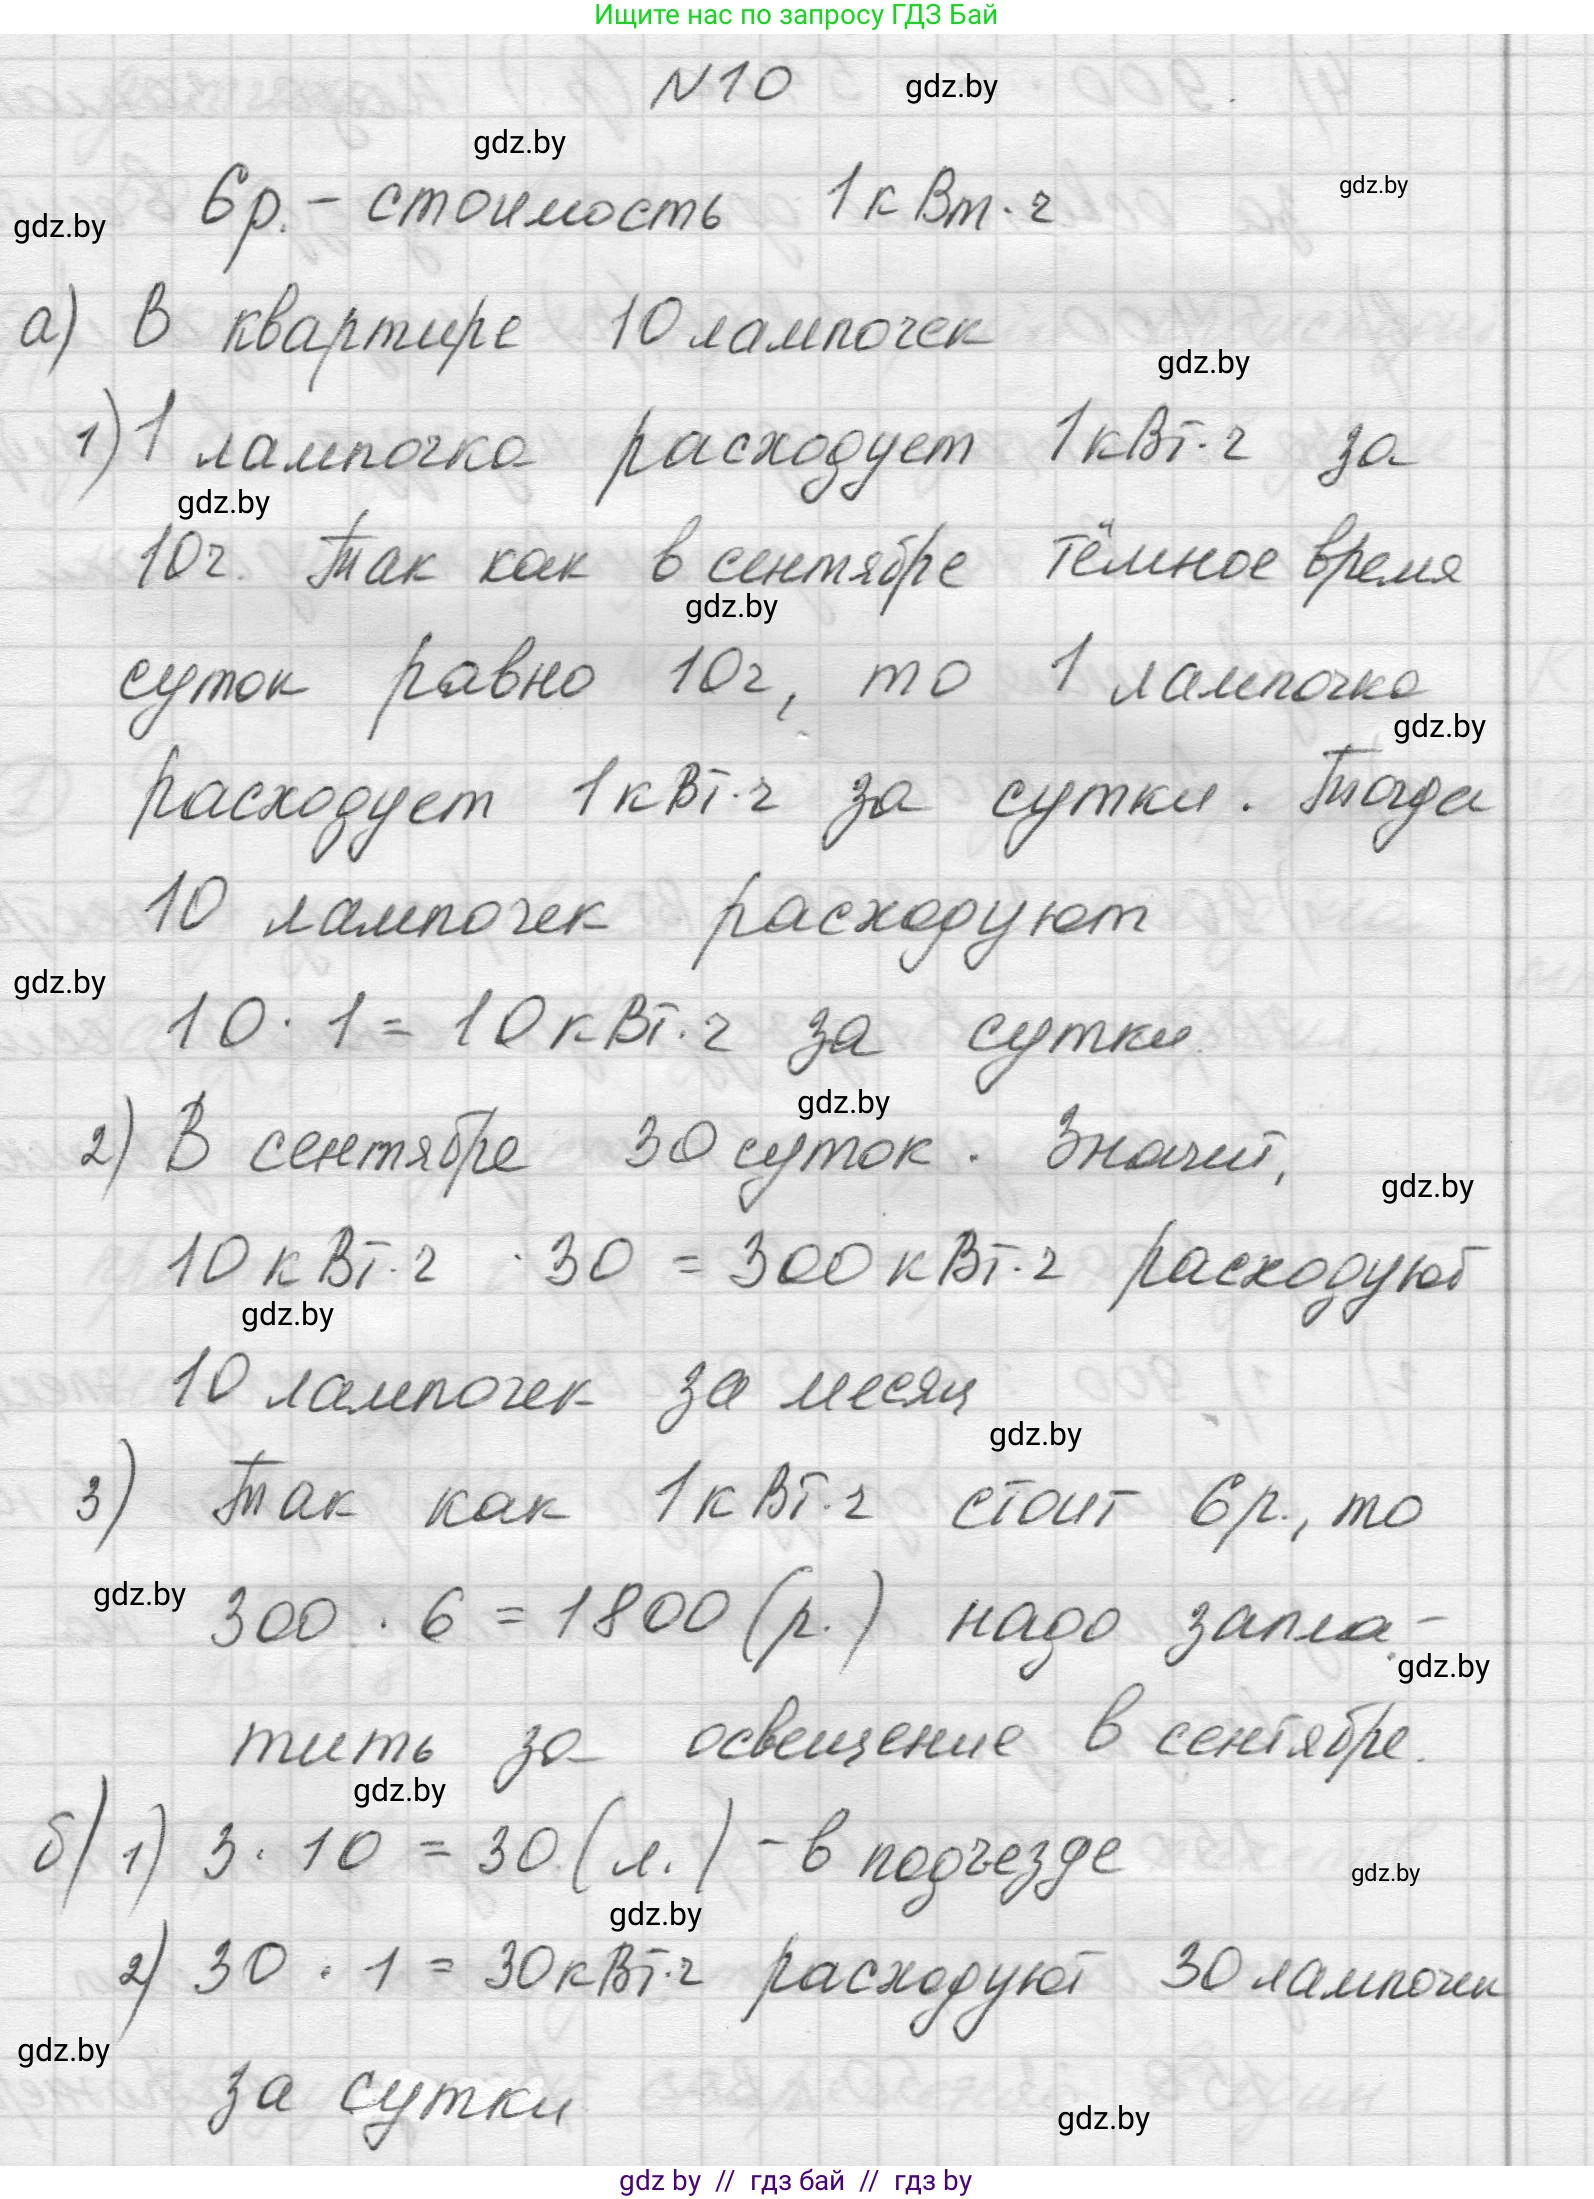 Ищите нас по запросу ГДЗ Бай
N10 gdz.by
gdz.by
6р. - стоимость 1кВт·ч gdz.by
gdz.by
а) В квартире 10 лампочек
gdz.by
1) 1 лампочка расходует 1кВт·ч за
gdz.by
10ч. Так как в сентябре тёмное время
gdz.by
суток равно 10ч, то 1 лампочка
gdz.by
расходует 1кВт·ч за сутки. Тогда
10 лампочек расходуют
gdz.by
10 · 1 = 10кВт·ч за сутки
gdz.by
2) В сентябре 30 суток. Значит,
gdz.by
10кВт·ч · 30 = 300кВт·ч расходуют
gdz.by
10 лампочек за месяц
gdz.by
3) Так как 1кВт·ч стоит 6р., то
gdz.by
300 · 6 = 1800 (р.) надо запла-
gdz.by
тить за освещение в сентябре.
gdz.by
б) 1) 3 · 10 = 30 (л.) - в подъезде
gdz.by
gdz.by
2) 30 · 1 = 30кВт·ч расходуют 30 лампочек
gdz.by
за сутки
gdz.by
gdz by // гдз бай // гдз by